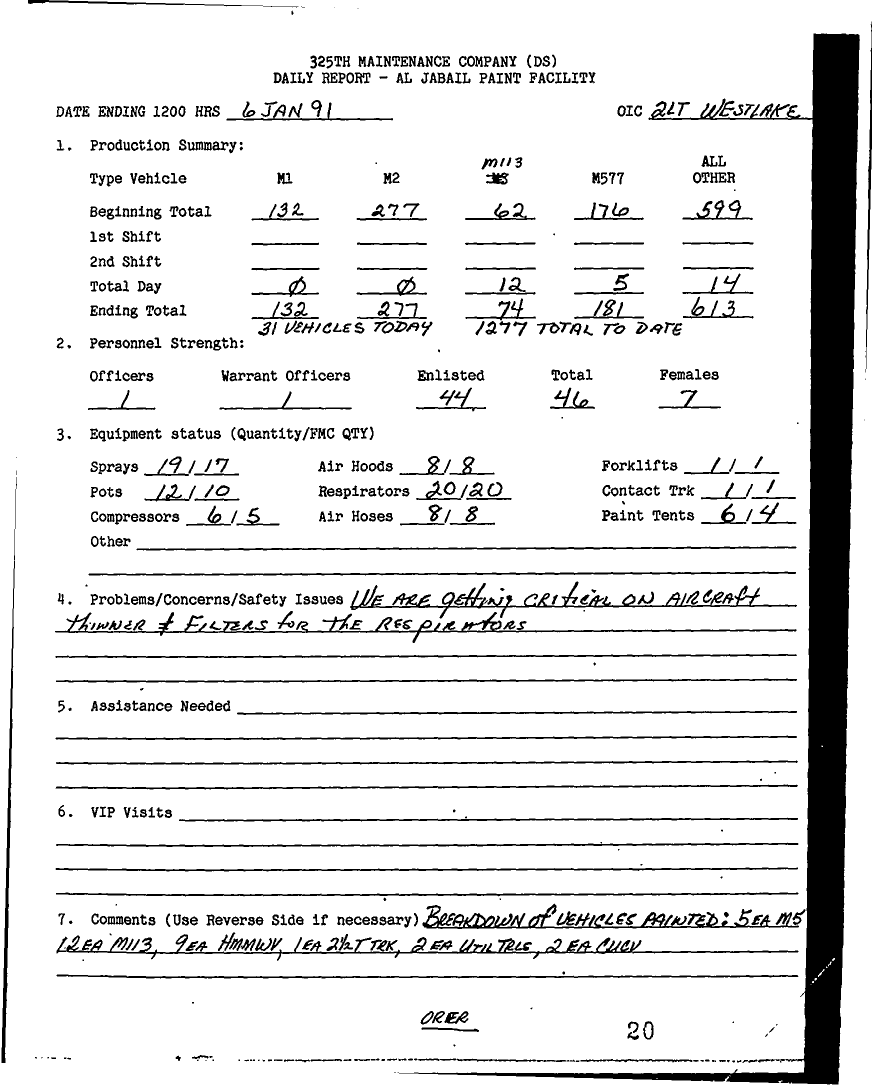 325TH MAINTENANCE COMPANY (DS)
DAILY REPORT - AL JABAIL PAINT FACILITY
DATE ENDING 1200 HRS 6 JAN 91 OIC 2LT WESTLAKE
1. Production Summary:
M113 ALL
Type Vehicle M1 M2 M577 OTHER
Beginning Total 132 277 62 176 599
1st Shift
2nd Shift
Total Day Ø Ø 12 5 14
Ending Total 132 277 74 181 613
31 VEHICLES TODAY 1277 TOTAL TO DATE
2. Personnel Strength:
Officers Warrant Officers Enlisted Total Females
1 1 44 46 7
3. Equipment status (Quantity/FMC QTY)
Sprays 19/17 Air Hoods 8/8 Forklifts 1/1
Pots 12/10 Respirators 20/20 Contact Trk 1/1
Compressors 6/5 Air Hoses 8/8 Paint Tents 6/4
Other
4. Problems/Concerns/Safety Issues WE ARE getting CRITICAL ON AIRCRAft
thinnER & FILTERS foR THE RESpiRAtoRS
5. Assistance Needed
6. VIP Visits
7. Comments (Use Reverse Side if necessary) BREAKDOWN of VEHICLES PAINTED: 5 EA M5
12 EA M113, 9 EA HMMWV, 1 EA 2½ T TRK, 2 EA UTIL TRLS, 2 EA CUCV
20